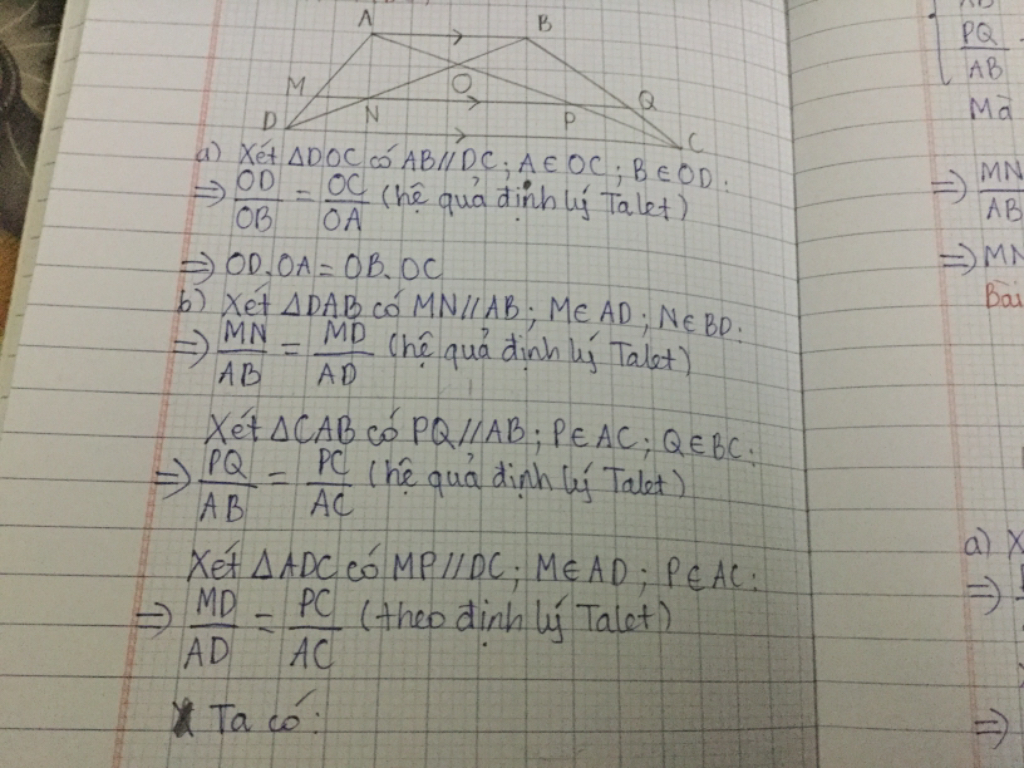 A B
M O Q
D N P C
a) Xét ΔDOC có AB//DC; A∈OC; B∈OD:
⇒ OD/OB = OC/OA (hệ quả định lý Talet)
⇒ OD.OA = OB.OC
b) Xét ΔDAB có MN//AB; M∈AD; N∈BD:
⇒ MN/AB = MD/AD (hệ quả định lý Talet)
Xét ΔCAB có PQ//AB; P∈AC; Q∈BC:
⇒ PQ/AB = PC/AC (hệ quả định lý Talet)
Xét ΔADC có MP//DC; M∈AD; P∈AC:
⇒ MD/AD = PC/AC (theo định lý Talet)
Ta có:
PQ/AB
Mà
⇒ MN/AB
⇒ MN
Bài
a) X
⇒
⇒